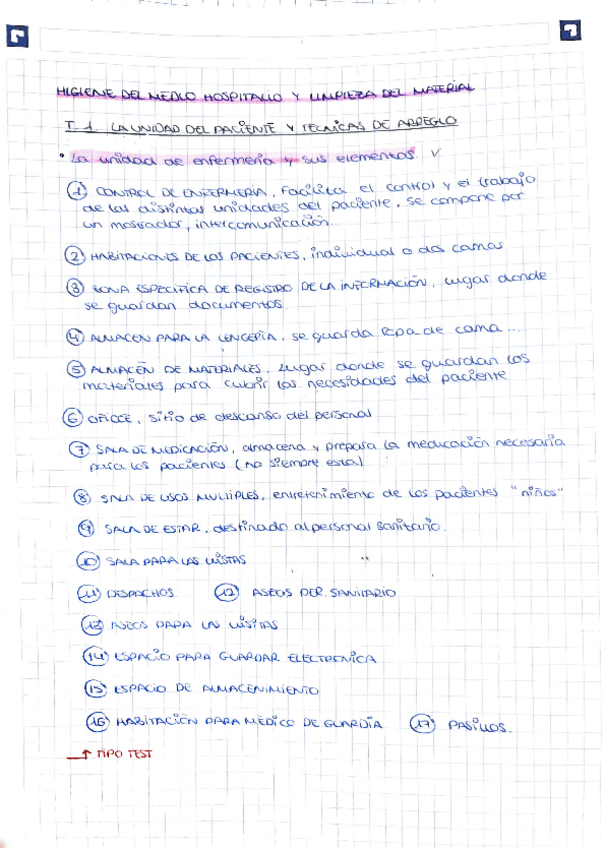 HIGIENE DEL MEDIO HOSPITALIO Y LIMPIEZA DEL MATERIAL
T. 1. LA UNIDAD DEL PACIENTE Y TECNICAS DE ARREGLO
• La unidad de enfermeria y sus elementos. ✓
① CONTROL DE ENFERMERIA, facilita el control y el trabajo
de las distintas unidades del paciente, se compone por
un mostrador, intercomunicación.
② HABITACIONES DE LOS PACIENTES, individual o dos camas
③ ZONA ESPECIFICA DE REGISTRO DE LA INFORMACIÓN, lugar donde
se guardan documentos.
④ ALMACEN PARA LA LENCERIA, se guarda ropa de cama ...
⑤ ALMACÉN DE MATERIALES, Lugar donde se guardan los
materiales para cubrir las necesidades del paciente
⑥ OFICCE, sitio de descanso del personal
⑦ SALA DE MEDICACIÓN, almacena y prepara la medicación necesaria
para los pacientes (no siempre esta)
⑧ SALA DE USOS MULTIPLES, entretenimiento de los pacientes "niños"
⑨ SALA DE ESTAR, destinado al personal sanitario.
⑩ SALA PARA LAS VISITAS
⑪ DESPACHOS ⑫ ASEOS PER. SANITARIO
⑬ ASEOS PARA LA VISITAS
⑭ ESPACIO PARA GUARDAR ELECTRONICA
⑮ ESPACIO DE ALMACENIMIENTO
⑯ HABITACIÓN PARA MÉDICO DE GUARDIA ⑰ PASILLOS.
→↑ TIPO TEST